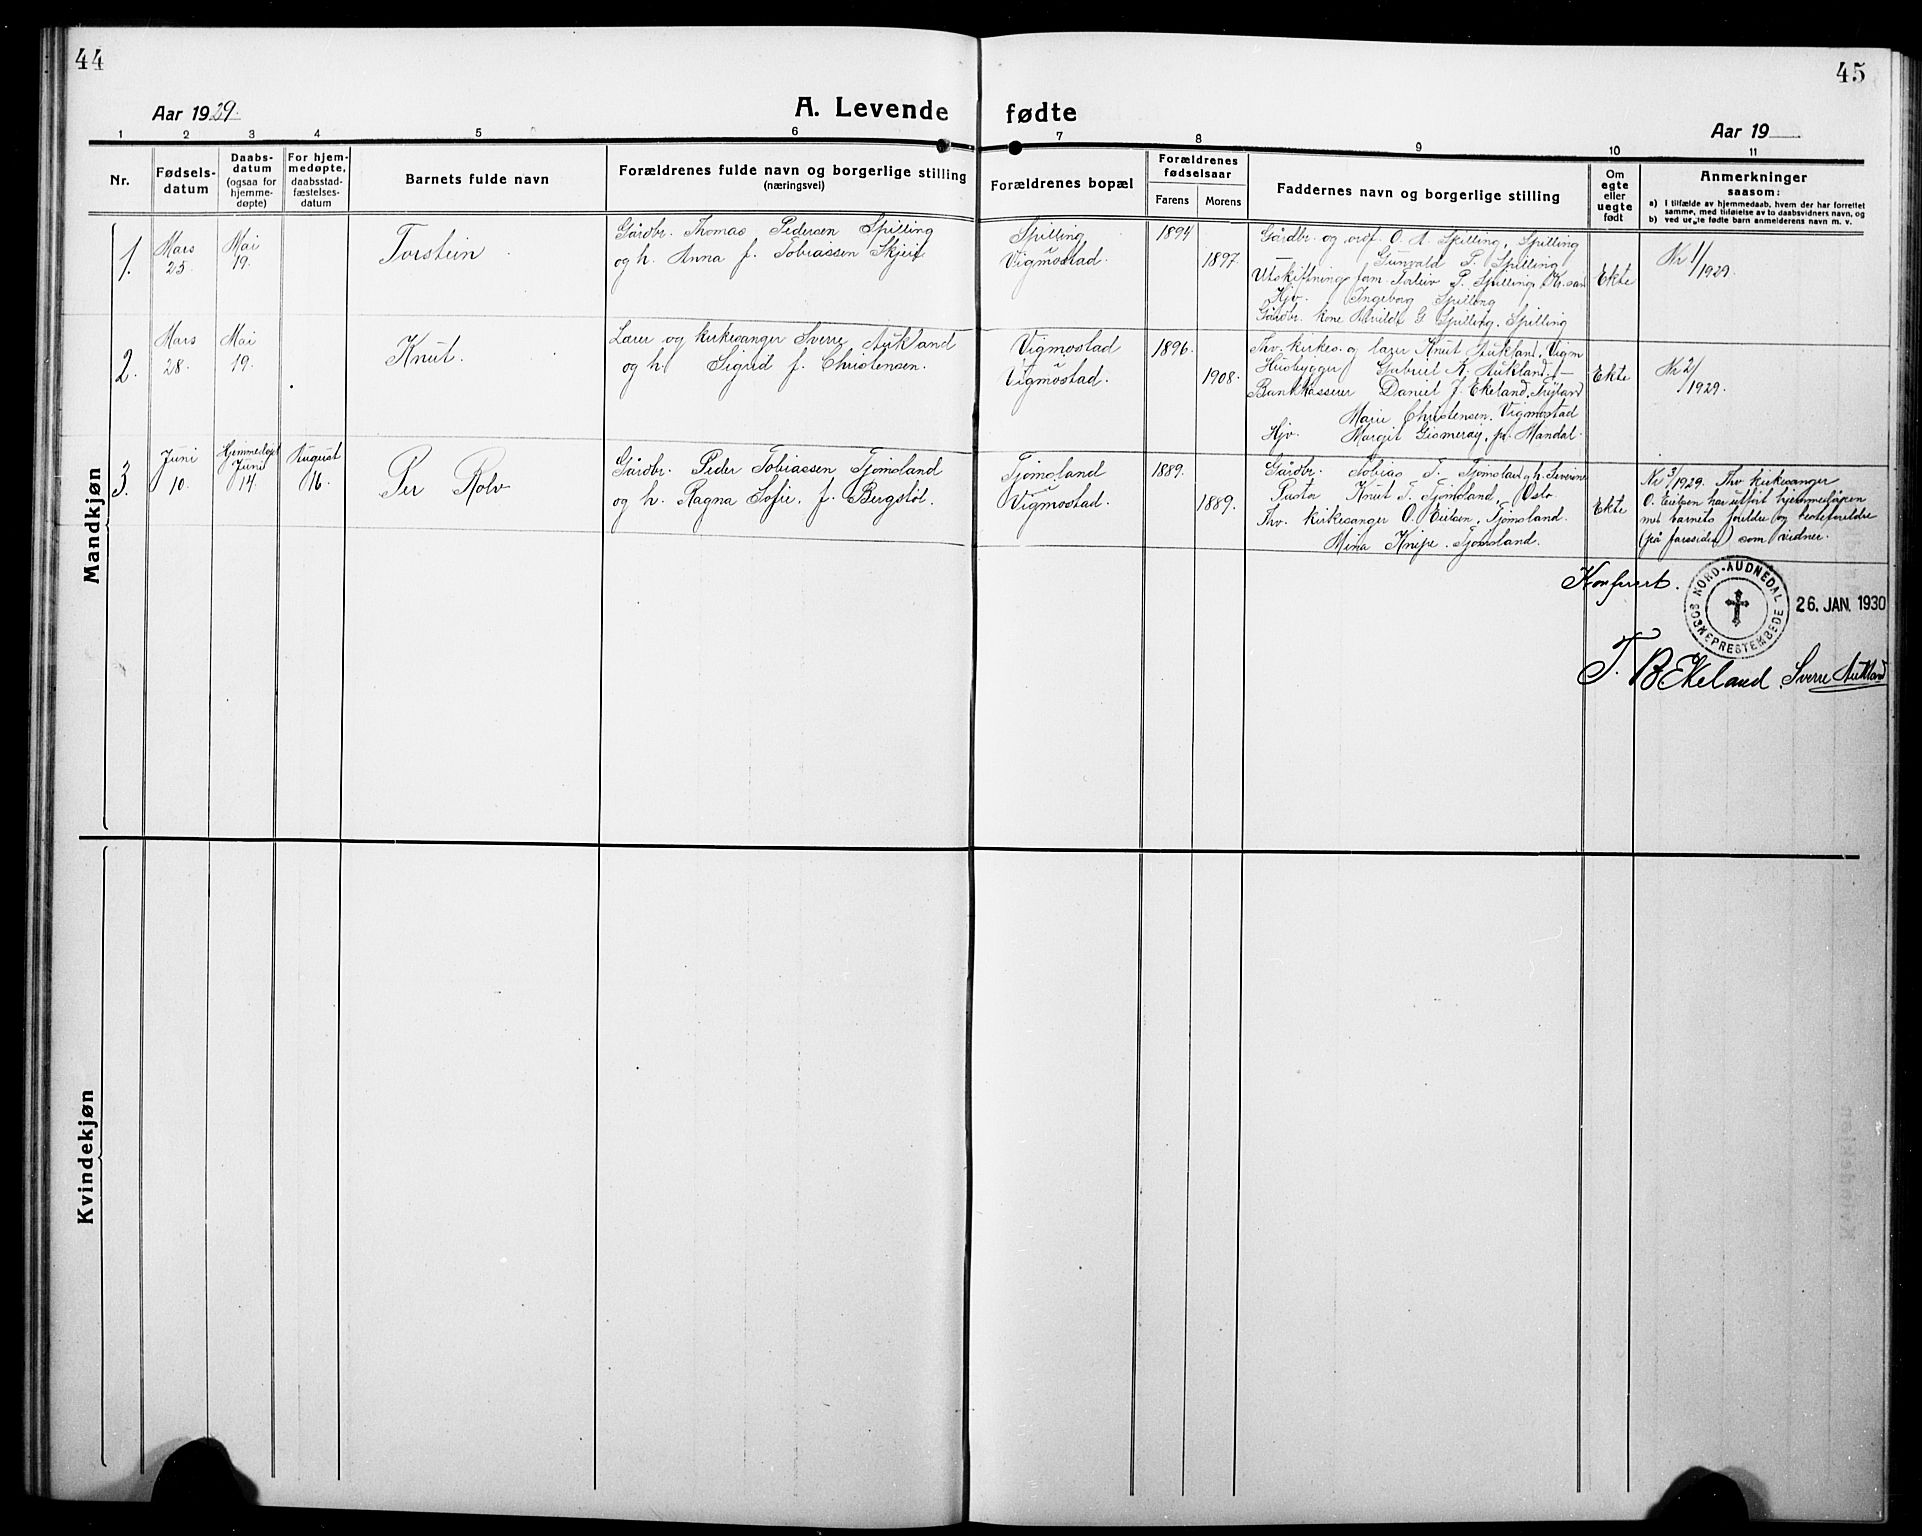 44
45
Aar 1929.
A. Levende fødte
Aar 19
1 2 3 4 5 6 7 8 9 10 11
Nr.
Fødsels-
datum
Daabs-
datum
(ogsaa for
hjemme-
døpte)
For hjem-
medøpte,
daabsstad-
fæstelses-
datum
Barnets fulde navn
Forældrenes fulde navn og borgerlige stilling
(næringsvei)
Forældrenes bopæl
Forældrenes
fødselsaar
Farens
Morens
Faddernes navn og borgerlige stilling
Om
egte
eller
uegte
født
Anmerkninger
saasom:
a) I tilfælde av hjemmedaab, hvem der har forrettet
samme, med tilføielse av to daabsvidners navn, og
b) ved uegte fødte barn anmelderens navn m. v.
Mandkjøn
1.
Mars
25.
Mai
19.
Torstein
Gårdbr. Thomas Pedersen Spilling
og h. Anna f. Tobiassen Skjeif
Spilling
Vigmostad.
1894
1897.
Gårdbr. og ordf. O. A. Spilling, Spilling
Gunvald P. Spilling
Utskiftningsform. Torleiv P. Spilling, Kr.san
Hjv. Ingeborg Spilling
Gårdbr. kone Alvilde G Spilling, Spilling
Ekte
Nr 1/1929.
2.
Mars
28.
Mai
19.
Knut.
Lærer og kirkesanger Sverre Aukland
og h. Sigrid f. Christensen.
Vigmostad
Vigmostad.
1896.
1908.
Thv. kirkes. og lærer Knut Aukland, Vigm
Husbygger Gabriel K. Aukland
Bankkasserer Daniel J. Ekeland, Tryland
Marie Christensen, Vigmostad
Hjv. Margit Gismerøy, pr. Mandal.
Ekte
Nr 2/1929.
3.
Juni
10.
Hjemmedøpt
Juni
14
August
16.
Per Rolv
Gårdbr. Peder Tobiassen Tjomsland
og h. Ragna Sofie, f. Bergstøl.
Tjomsland
Vigmostad.
1889.
1889.
Gårdbr. Tobias T. Tjomsland og h. Severine
Pastor Knut T. Tjomsland, Oslo
Thv. kirkesanger O. Eielsen, Tjomsland.
Mina Knipe. Tjomsland.
Ekte
Nr 3/1929. Thv kirkesanger
O. Eielsen har utført hjemmedåpen
med barnets foreldre og besteforeldre
(på farssiden) som vidner.
Konferert.
NORD-AUDNEDAL SOGNEPRESTEMBEDE
26. JAN. 1930
T. B. Ekeland. Sverre Aukland
Kvindekjøn